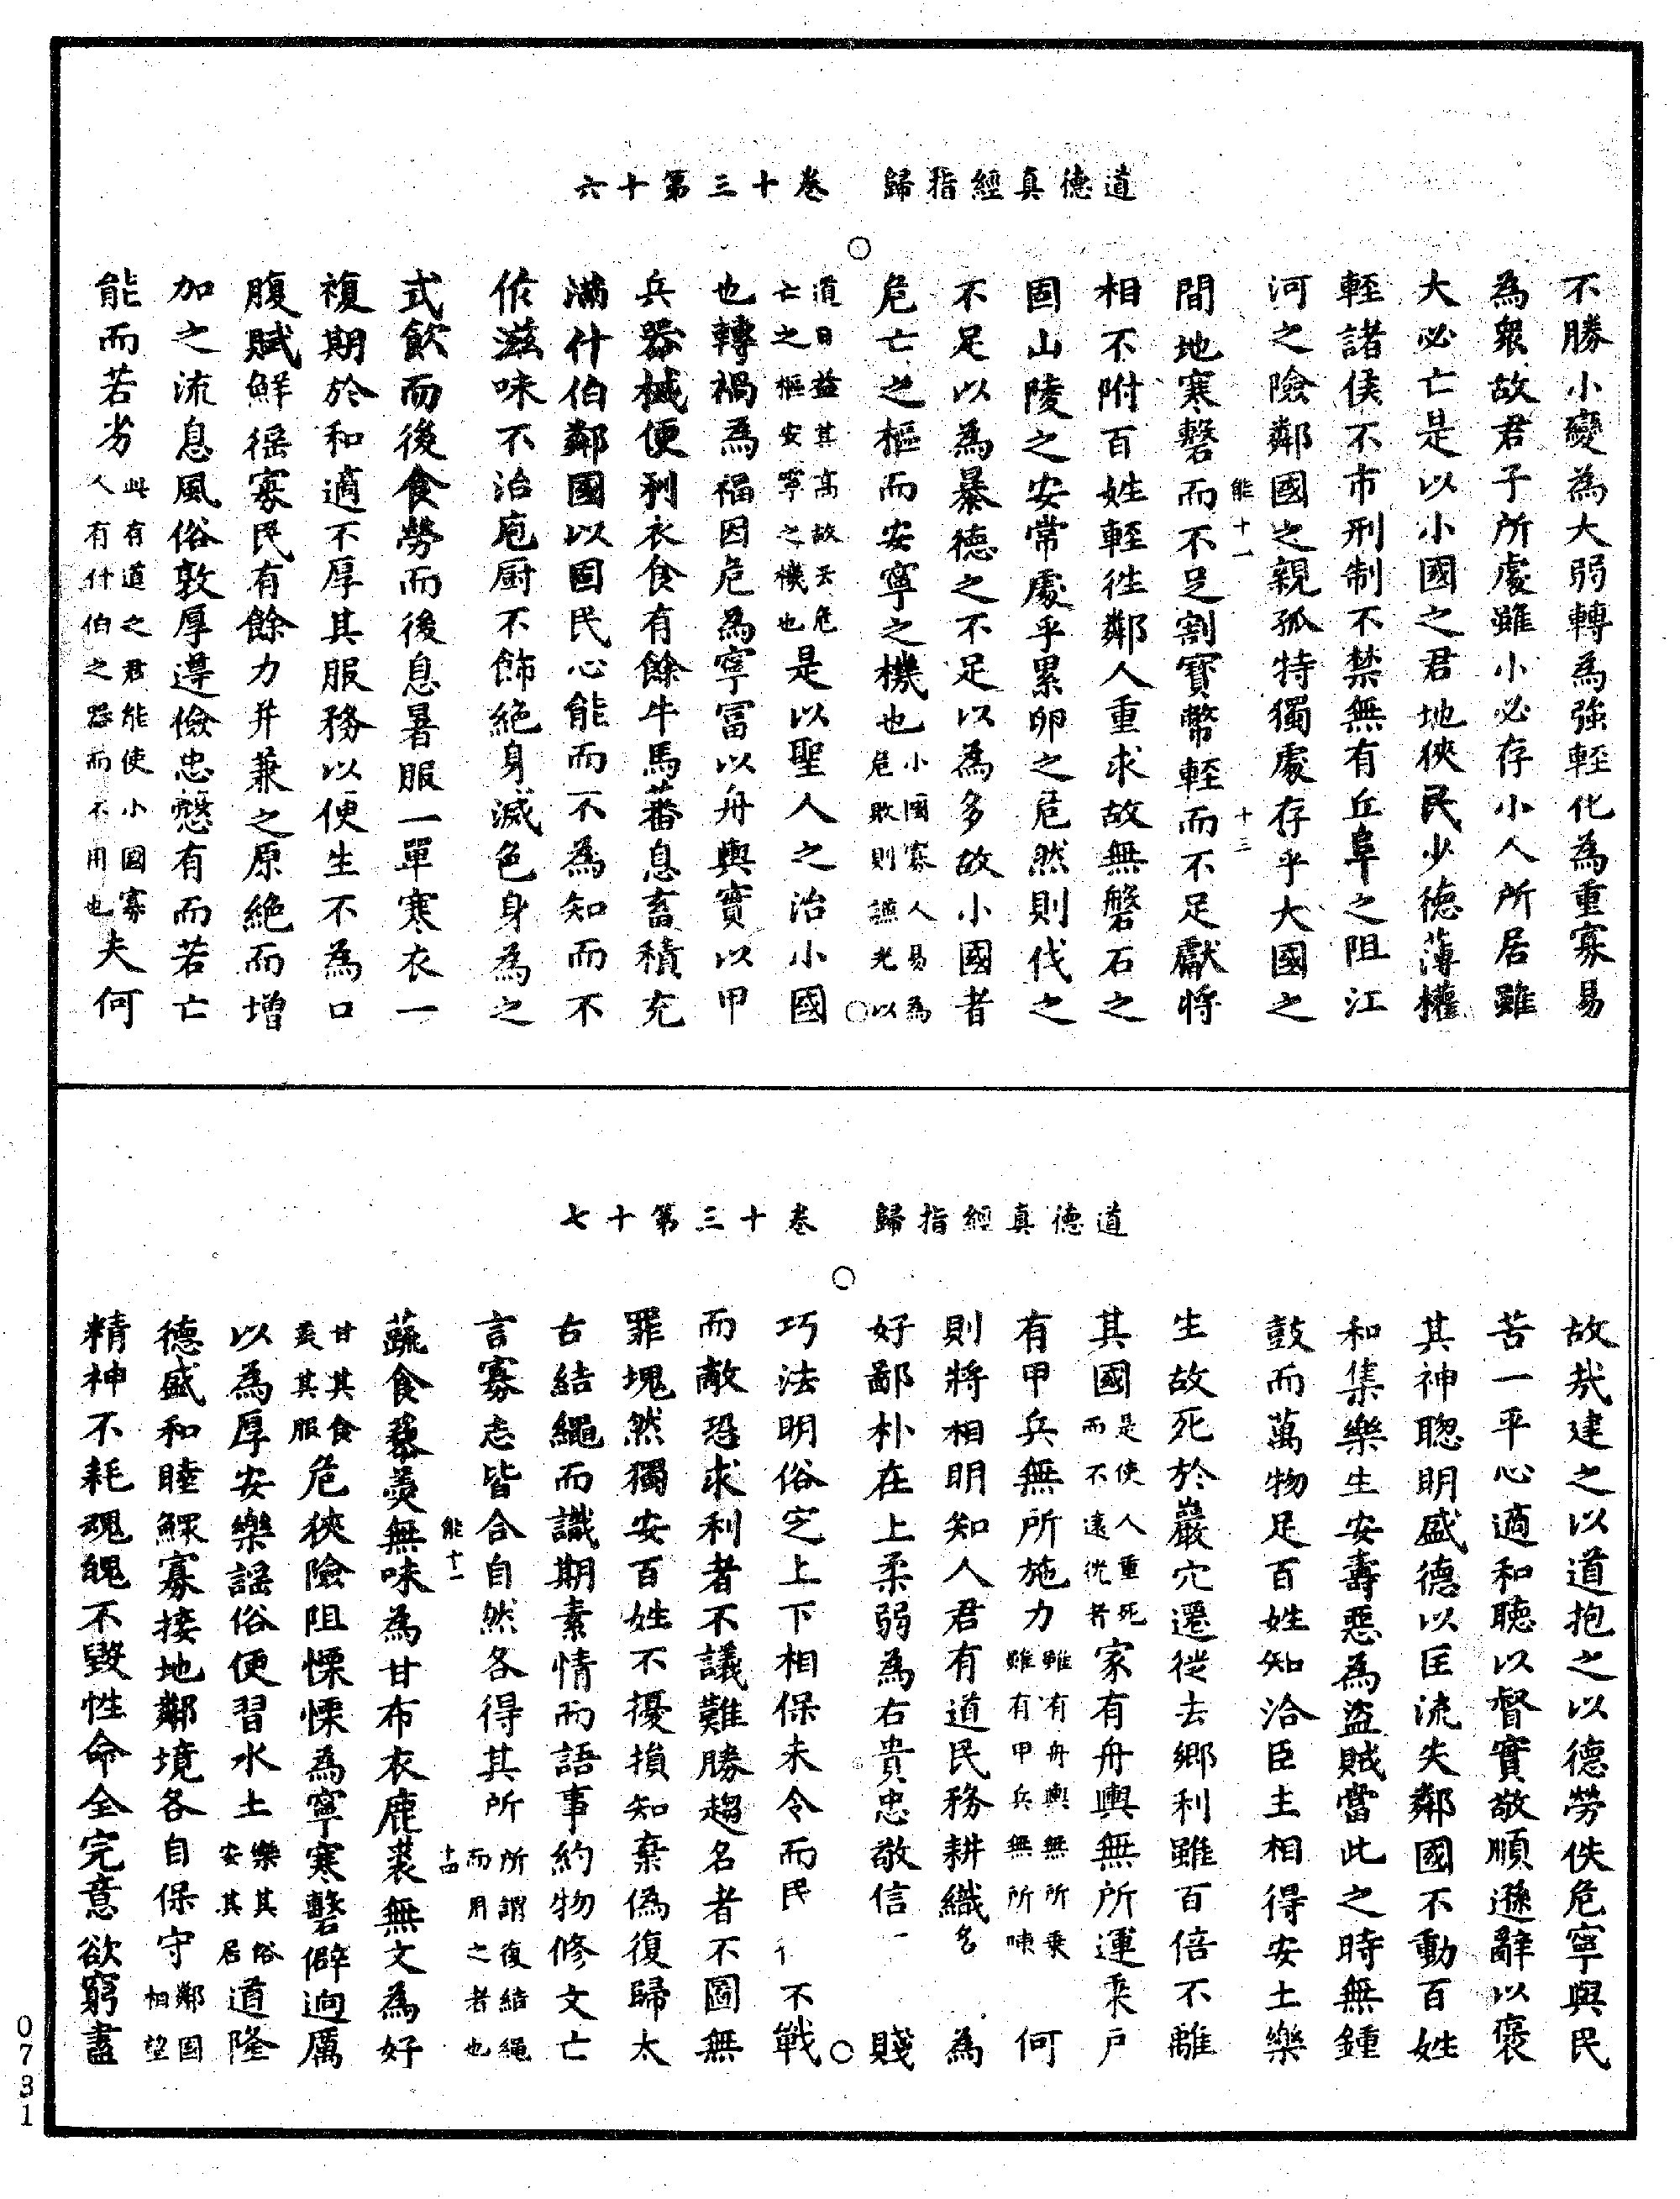 道德真經指歸　卷十三第十六
不勝小變為大弱轉為強輕化為重寡易
為衆故君子所處雖小必存小人所居雖
大必亡是以小國之君地狹民少德薄權
輕諸侯不市刑制不禁無有丘阜之阻江
河之險鄰國之親孤特獨處存乎大國之
能十一　十三
間地寒磬而不足割寶幣輕而不足獻將
相不附百姓輕往鄰人重求故無磐石之
固山陵之安常處乎累卵之危然則伐之
不足以為暴德之不足以為多故小國者
危亡之樞而安寧之機也小國寡人易為危敗則謙光以
道日益其高故云危亡之樞安寧之機也是以聖人之治小國
也轉禍為福因危為寧富以舟輿實以甲
兵器械便利衣食有餘牛馬蕃息畜積充
滿什伯鄰國以固民心能而不為知而不
作滋味不治庖厨不飾絶身滅色身為之
式飲而後食勞而後息暑服一單寒衣一
複期於和適不厚其服務以便生不為口
腹賦鮮徭寡民有餘力并兼之原絶而增
加之流息風俗敦厚遵儉忠慤有而若亡
能而若劣此有道之君能使小國寡人有什伯之器而不用也夫何
道德真經指歸　卷十三第十七
故哉建之以道抱之以德勞佚危寧與民
苦一平心適和聽以督實敬順遜辭以褒
其神聰明盛德以匡流失鄰國不動百姓
和集樂生安壽惡為盗賊當此之時無鍾
鼓而萬物足百姓知洽臣主相得安土樂
生故死於巖穴遷徙去鄉利雖百倍不離
其國是使人重死而不遠徙者家有舟輿無所運乘户
有甲兵無所施力雖有舟輿無所乘雖有甲兵無所陳何
則將相明知人君有道民務耕織名為
好鄙朴在上柔弱為右貴忠敬信賤
巧法明俗定上下相保未令而民不戰
而敵恐求利者不議難勝趨名者不圖無
罪塊然獨安百姓不擾損知棄偽復歸太
古結繩而識期素情而語事約物修文亡
言寡志皆合自然各得其所所謂復結繩而用之者也
能十一　十四
蔬食藜羮無味為甘布衣鹿裘無文為好
甘其食美其服危狹險阻慄慄為寧寒磬僻迥厲
以為厚安樂謡俗便習水土樂其俗安其居道隆
德盛和睦鰥寡接地鄰境各自保守鄰國相望
精神不耗魂魄不毀性命全完意欲窮盡
0731